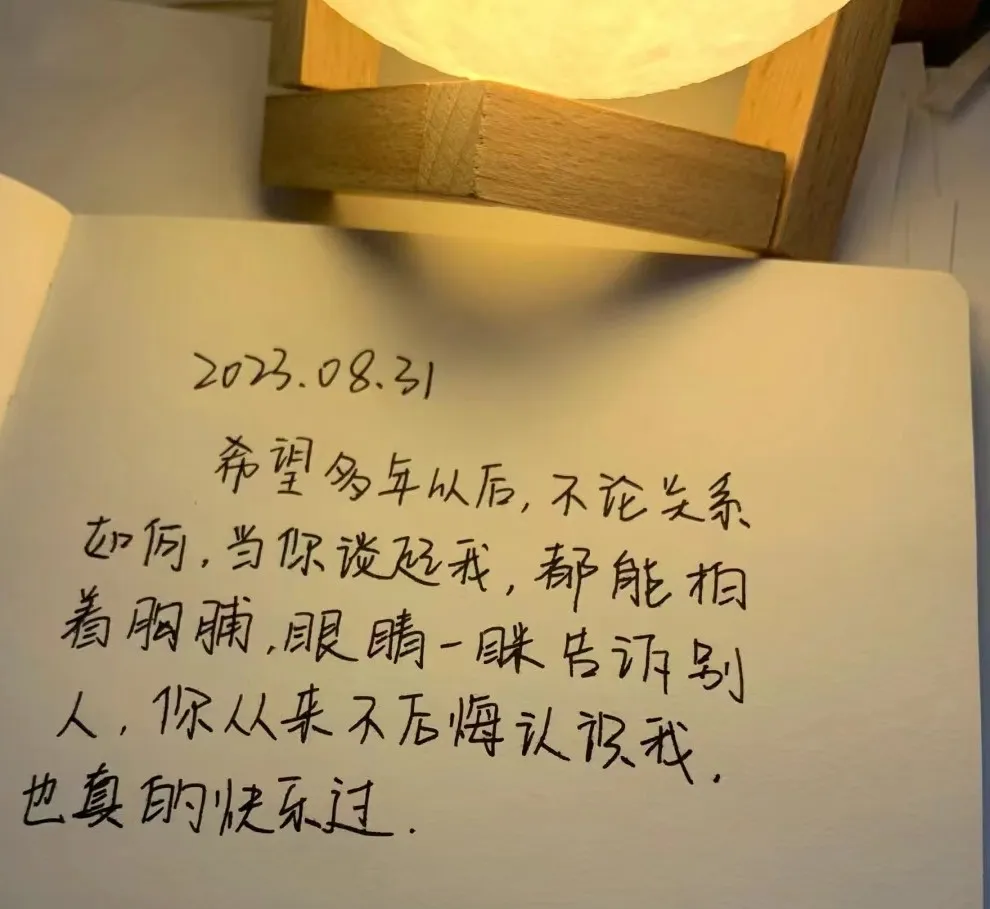 2023.08.31
希望多年以后,不论关系
如何,当你谈起我,都能拍
着胸脯,眼睛一眯告诉别
人,你从来不后悔认识我.
也真的快乐过.